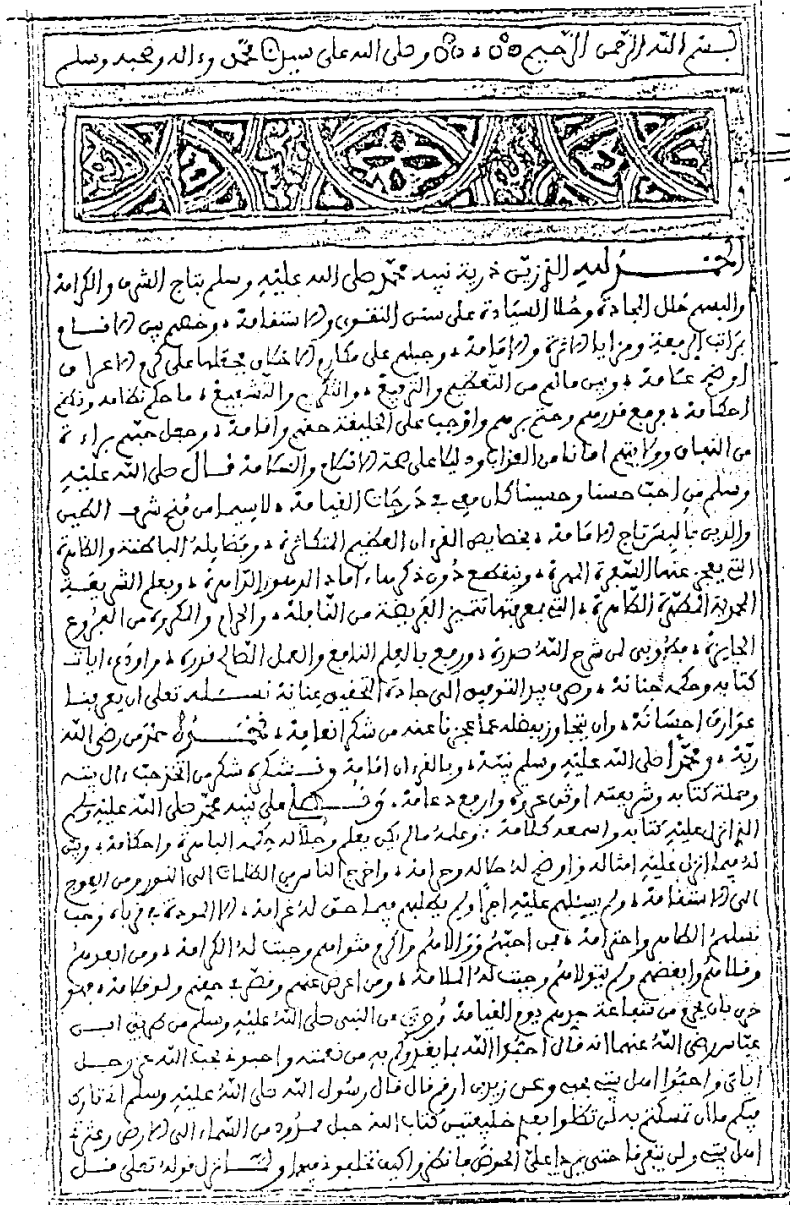 بسم الله الرحمن الرحيم وصلى الله على سيدنا محمد وءاله وصحبه وسلم
الحمد لله الذي زين ذرية نبيه محمد صلى الله عليه وسلم بتاج الشرف والكرامة
والبسهم حلل المجادة وحلا السيادة على سنن التقوى والاستقامة، وخصهم بين الأنام
بمراتب الرفعة ومزايا والإقامة، وجبلهم على مكارم الأخلاق على كرم الأعراق
أوضح علامة، وبين مالهم من التعظيم والترفيع، والتكريم والتشريف، ما حكم نظامه
احكامه، ورفع قدرهم وحتم برهم وأوجب على الخليقة حقهم، وجعل حبهم براءة
من النفاق وولايتهم امانا من العذاب ودليلا على صحة والسلامة فقال صلى الله عليه
وسلم من احب حسنا وحسينا كان معي في درجات القيامة، لاسيما من منح شرف الطين
والدين تاج الإمامة، بخصايص القرءان العظيم المتكاثرة، وفضايله الباطنة والظاهرة
التي يعجز عنها السفرة المهرة، وينقطع دون ذكرها، وبعلم الشريعة
المحمدية المطهرة الطاهرة، التي بمعرفتها تتميز الفريضة من النافلة، والحرام والمكروه من الفروع
الجايزة، لمن شرح الله صدره، ورفع بالعلم النافع والعمل الصالح قدره، واودع ايات
كتابه وحكمه جنانه، وصرف بيد التوفيق الى جادة التحقيق عنانه نسئله تعلى ان يعرفنا
عوارف احسانه، وان يتجاوز بفضله عما عجزنا عنه من شكر انعامه، نحمده حمد من رضي الله
ربه، ومحمدا صلى الله عليه وسلم نبيه، وبالقرءان امامه ونشكره شكر من اتخذ حب ءال بيته
وحملة كتابه وشريعته اوثق عروة وارفع دعامة، على نبيه محمد صلى الله عليه وسلم
الذي انزل عليه كتابه واسمعه كلامه، وعلمه ما لم يكن يعلم واحكامه، وبين
له فيما انزل عليه امثاله واوضح له حلاله وحرامه، واخرج الناس من الظلمات الى النور ومن العوج
الى الاستقامة، ولم يسئلهم عليه اجرا ولم يطلبهم فيما حق له غرامة، الا المودة في قرباه وحب
نسلهم الطاهر واحترامه، فمن احبهم ووالاهم واكرم مثواهم وجبت له الكرامة، ومن ابعدهم
وقلاهم وابغضهم ولم يتولاهم وجبت له الملامة، ومن اعرض عنهم وقصر في حقهم ولو قلامة، فهو
حري بان من شفاعة جدهم يوم القيامة روي عن النبي صلى الله عليه وسلم من طريق ابن
عباس رضي الله عنهما انه قال احبوا الله لما يغذوكم به من نعمته واحبوني بحب الله عز وجل
اياي واحبوا اهل بيتي بحبي وعن زيد بن ارقم قال قال رسول الله صلى الله عليه وسلم اني تارك
فيكم ما ان تمسكتم به لن تضلوا بعدي خليفتين كتاب الله حبل ممدود من السماء الى الارض وعترتي
اهل بيتي ولن يتفرقا حتى يردا علي الحوض فانظروا كيف تخلفوني فيهما ولما نزل قوله تعلى قل